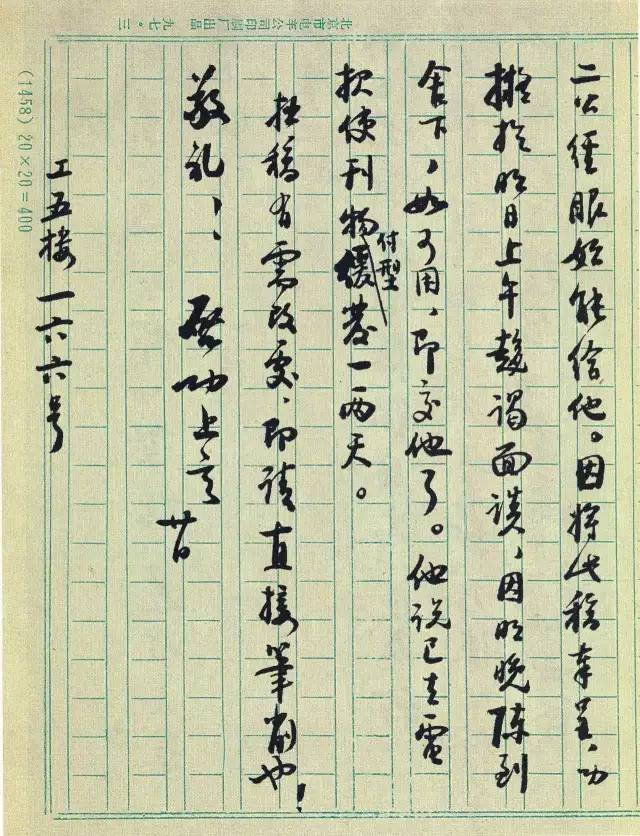 二公經眼始能给他。因将此稿奉呈，功
擬於明日上午趨谒面談，因明晚陳到
舍下，如可用，即交他了。他说已去電
报使刊物缓發一两天。
付型
拙稿有需改处，即请直接筆削也！
敬礼！ 启功上言
廿日
工五楼一六六号
北京市电车公司印刷厂出品 九七·三
(1458) 20×20=400